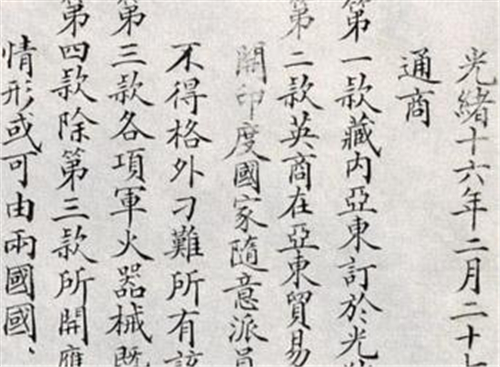 光緒十六年二月二十七
通商
第一款藏內亞東訂於光緒
第二款英商在亞東貿易
關印度國家隨意派員
不得格外刁難所有該
第三款各項軍火器械既
第四款除第三款所開應
情形或可由兩國國